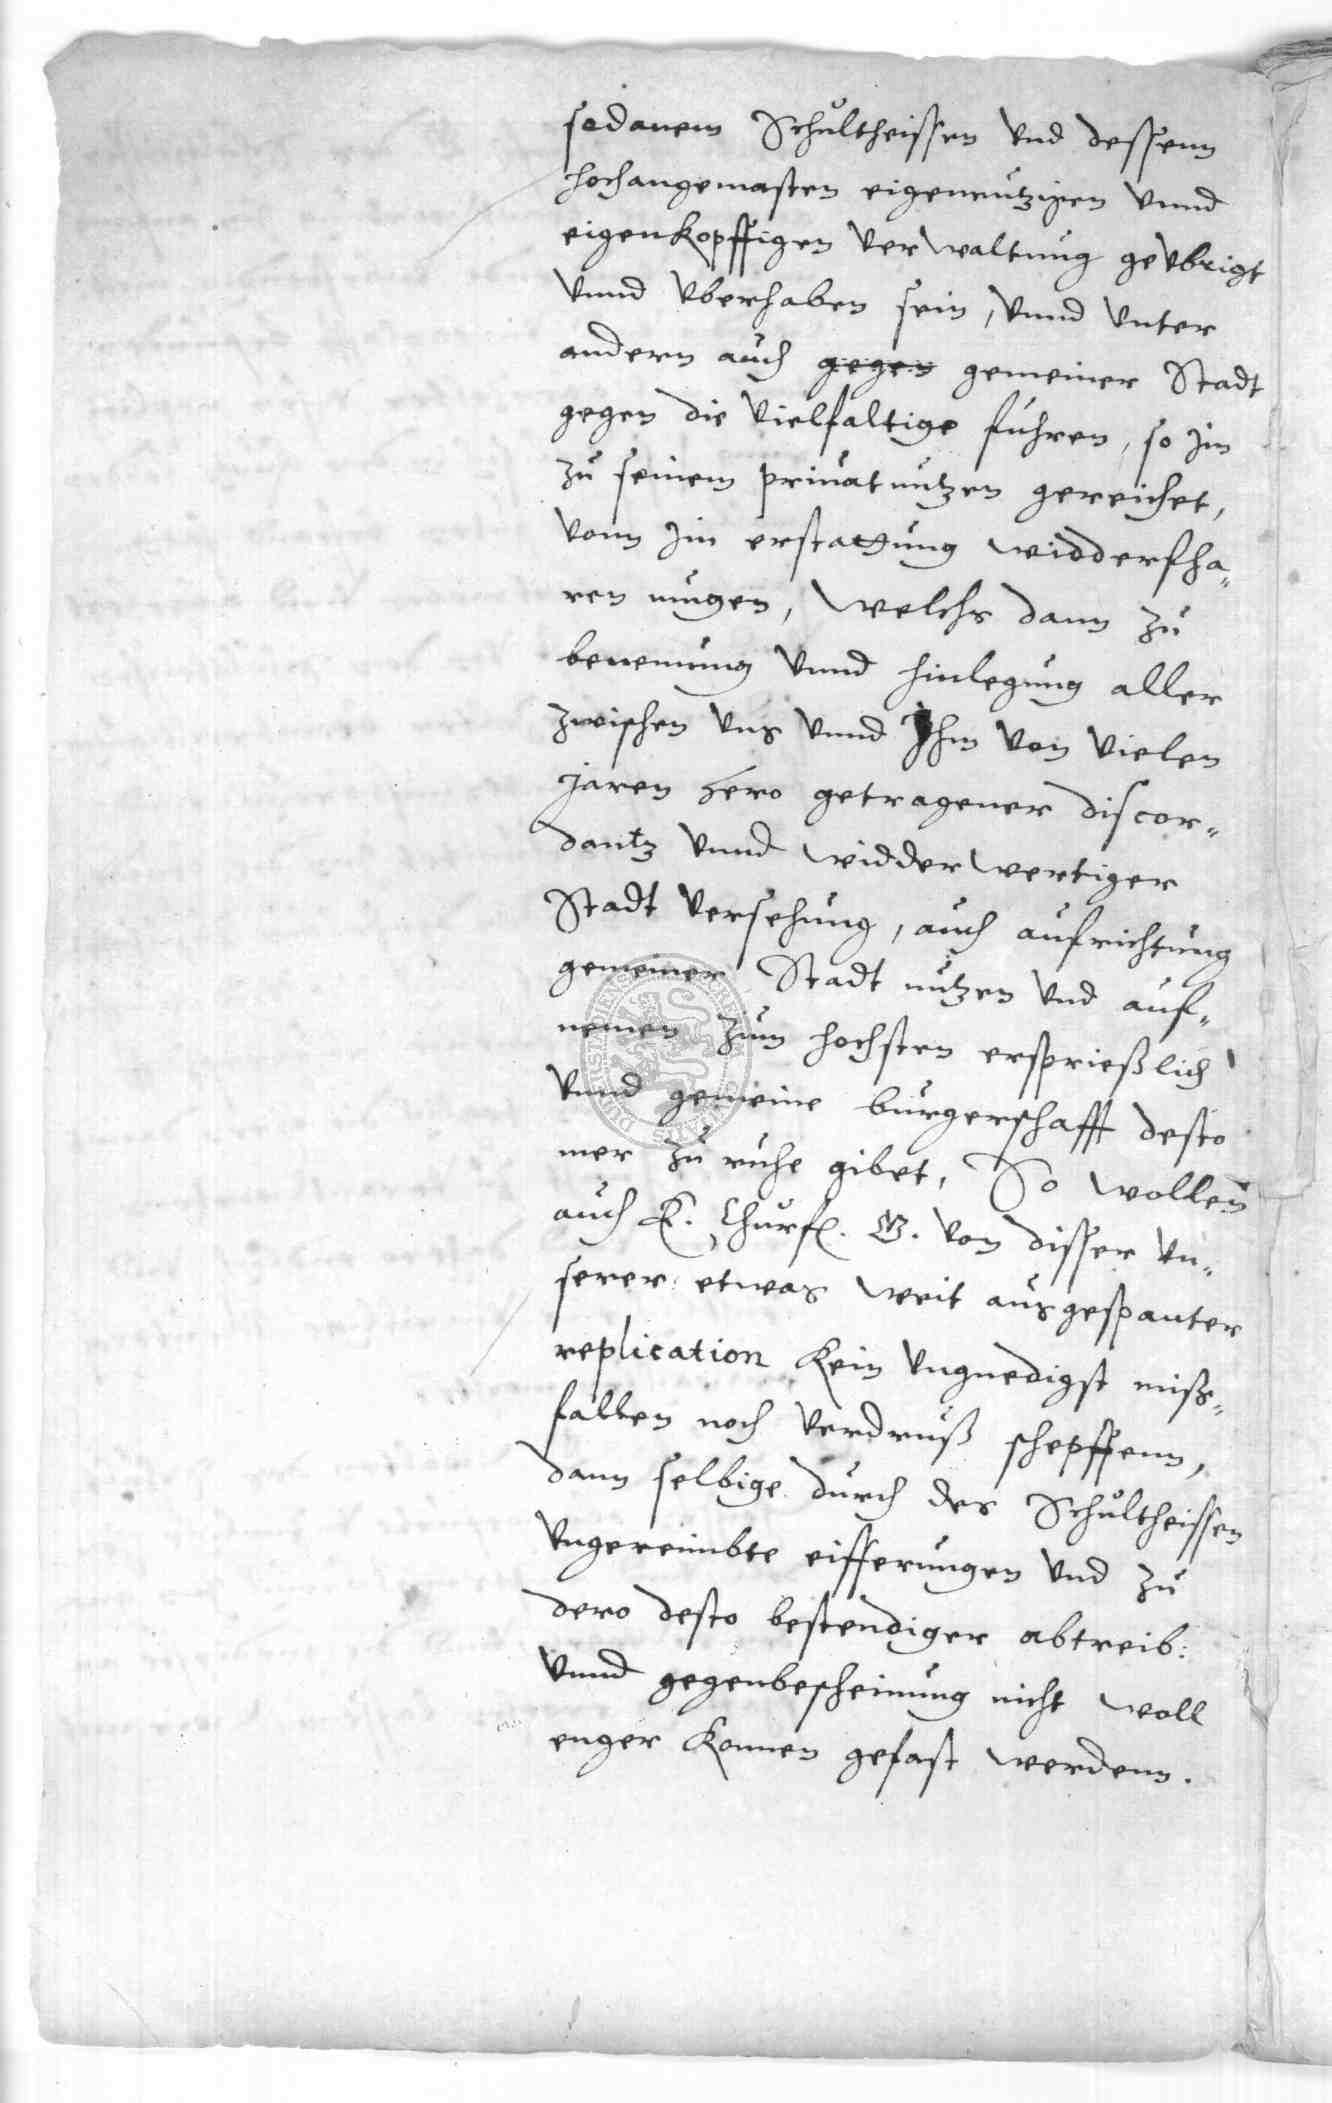 sodanem Schultheissen vnd dessenn
hochangemasten eigennutzigen vnnd
eigenkopffigen verwaltung geubrigt
vnnd vberhaben sein, vnnd vnter
andern auch gegen gemeiner Stadt
gegen die vielfaltige fuhren, so Im
zu seinem priuatnutzen gereichet,
vonn Im erstattung widderfha„
ren mugen, welchs dann zu
benemung vnnd hinlegung aller
zwischen vns vnnd Ihm von vielen
jaren hero getragener discor„
dantz vnnd widderwertiger
Stadt versehung, auch aufrichtung
gemeiner Stadt nutzen vnd auf„
nemen zum hochsten ersprießlich
vnnd gemeine burgerschafft desto
mer zu ruhe gibet, So wollen
auch E. Churf. G. von disser vn„
serer etwas weit ausgespanter
replication kein vngnedigst miß„
fallen noch verdruß schepffenn,
dann selbige durch des Schultheissen
vngereimbte eifferungen vnd zu
dero desto bestendiger abtreib:
vnnd gegenbescheinung nicht woll
enger konnen gefast werdenn.